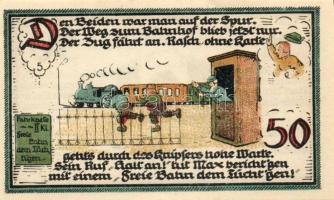 Den Beiden war man auf der Spur.
Der Weg zum Bahnhof blieb jetzt nur.
Der Zug fährt an. Rasch ohne Karte
5
Fahrkarte
II Kl.
freie
Bahn
dem Tüch-
tigen
50
gehts durch des Knipsers hohe Warte.
Sein Ruf „Halt an! tut Max berichtgen
mit einem „Freie Bahn dem Tüchtgen!